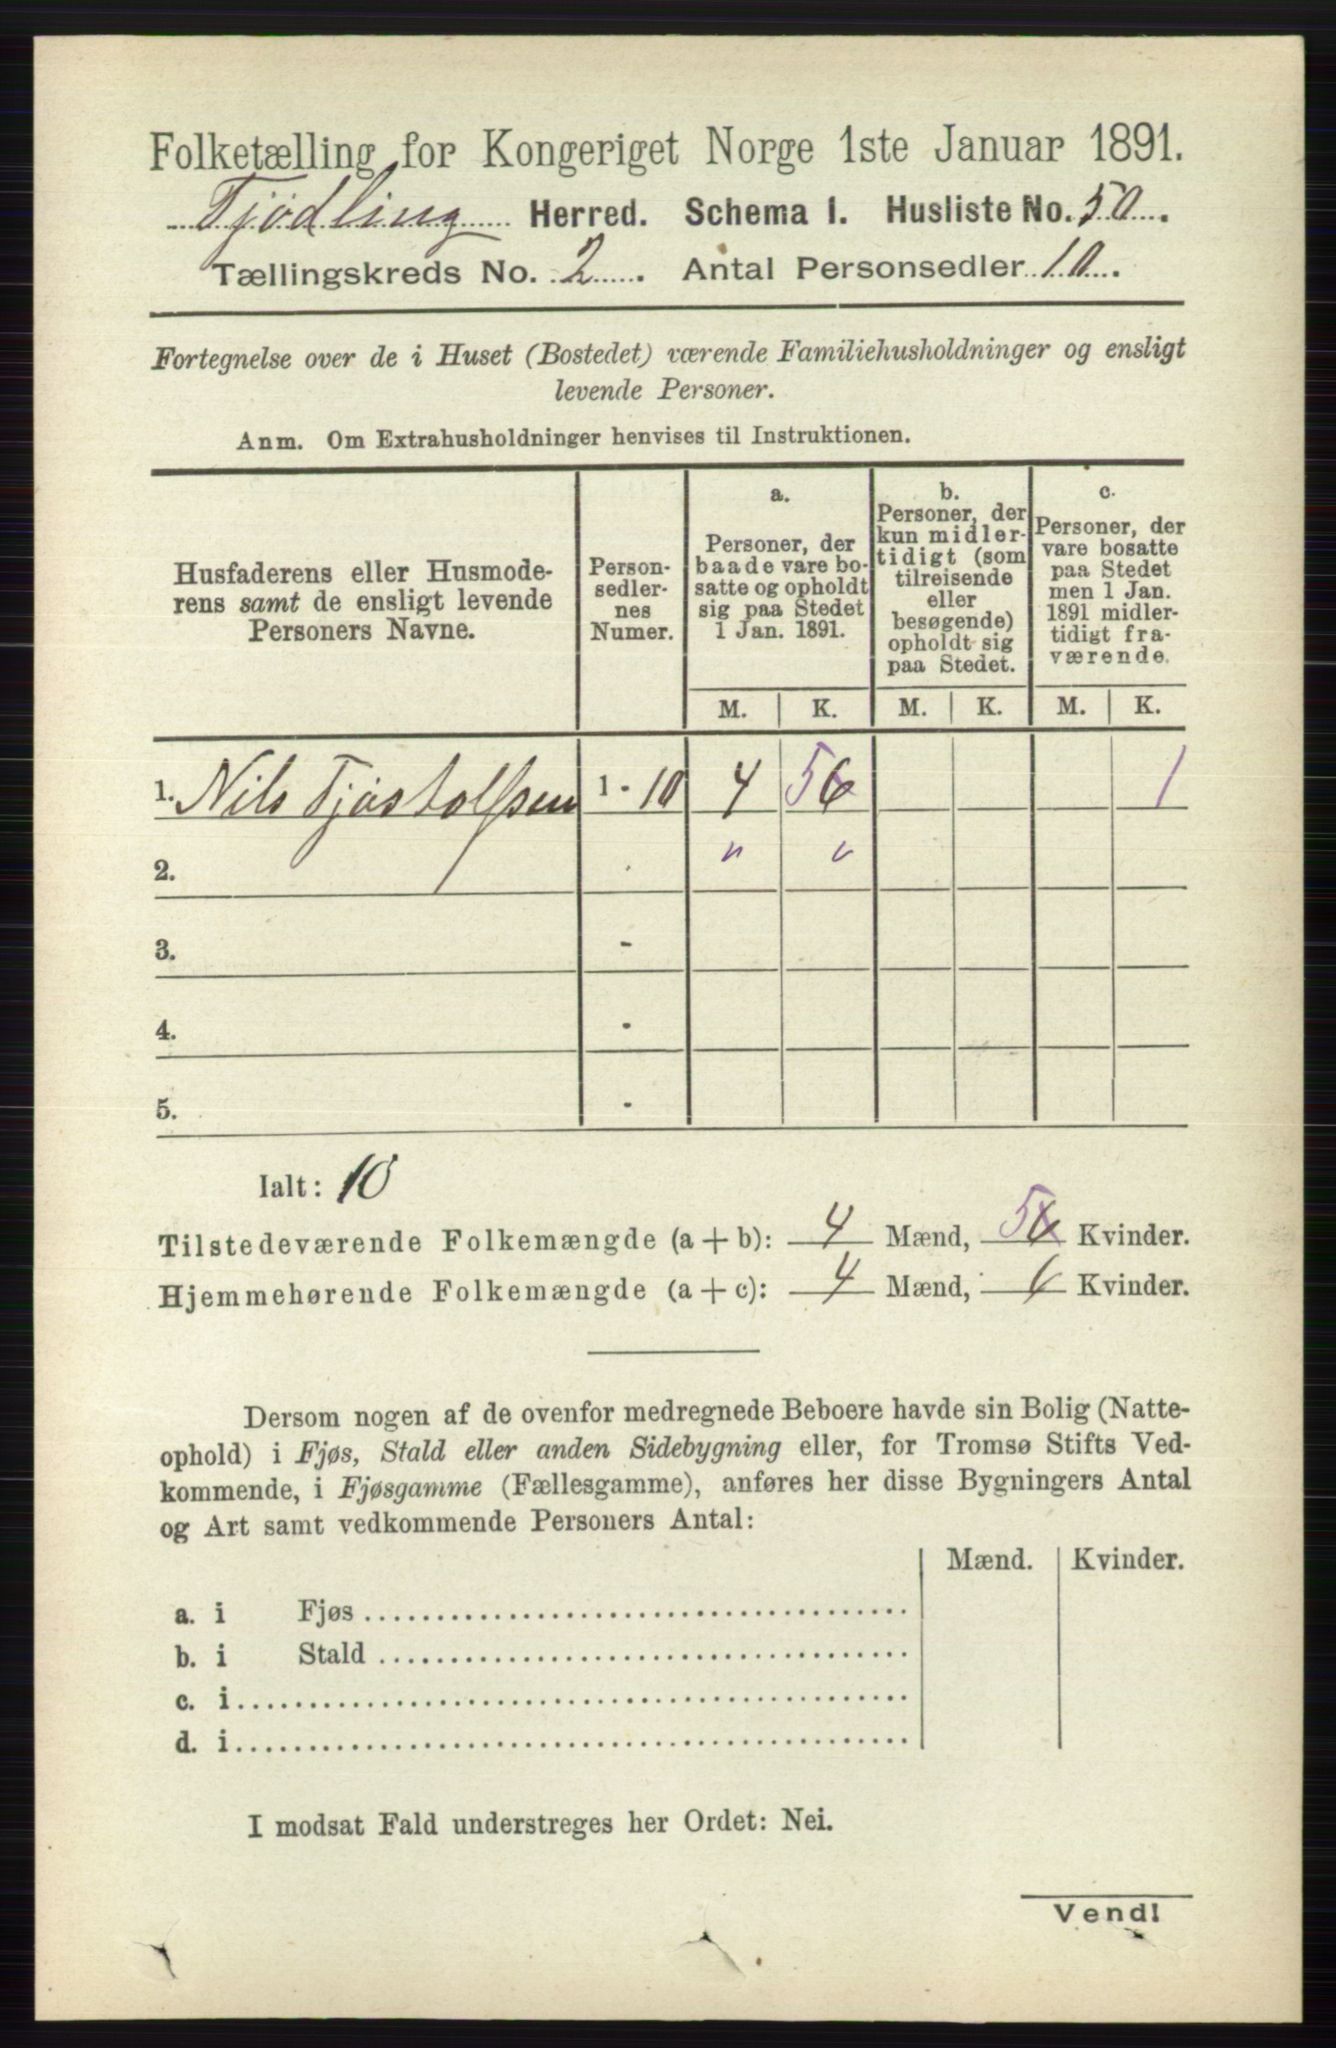 Folketælling for Kongeriget Norge 1ste Januar 1891.
Tjødling Herred. Schema I. Husliste No. 50.
Tællingskreds No. 2. Antal Personsedler 10.
Fortegnelse over de i Huset (Bostedet) værende Familiehusholdninger og ensligt
levende Personer.
Anm. Om Extrahusholdninger henvises til Instruktionen.
Husfaderens eller Husmode-
rens samt de ensligt levende
Personers Navne.
Person-
sedler-
nes
Numer.
a.
Personer, der
baade vare bo-
satte og opholdt
sig paa Stedet
1 Jan. 1891.
b.
Personer, der
kun midler-
tidigt (som
tilreisende
eller
besøgende)
opholdt sig
paa Stedet.
c.
Personer, der
vare bosatte
paa Stedet
men 1 Jan.
1891 midler-
tidigt fra-
værende.
M. K. M. K. M. K.
1. Nils Tjøstolfsen 1 - 10 4 5 6 1
2. " "
3. -
4. -
5. -
Ialt: 10
Tilstedeværende Folkemængde (a + b): 4 Mænd, 5 6 Kvinder.
Hjemmehørende Folkemængde (a + c): 4 Mænd, 6 Kvinder.
Dersom nogen af de ovenfor medregnede Beboere havde sin Bolig (Natte-
ophold) i Fjøs, Stald eller anden Sidebygning eller, for Tromsø Stifts Ved-
kommende, i Fjøsgamme (Fællesgamme), anføres her disse Bygningers Antal
og Art samt vedkommende Personers Antal:
Mænd. Kvinder.
a. i Fjøs
b. i Stald
c. i
d. i
I modsat Fald understreges her Ordet: Nei.
Vend!